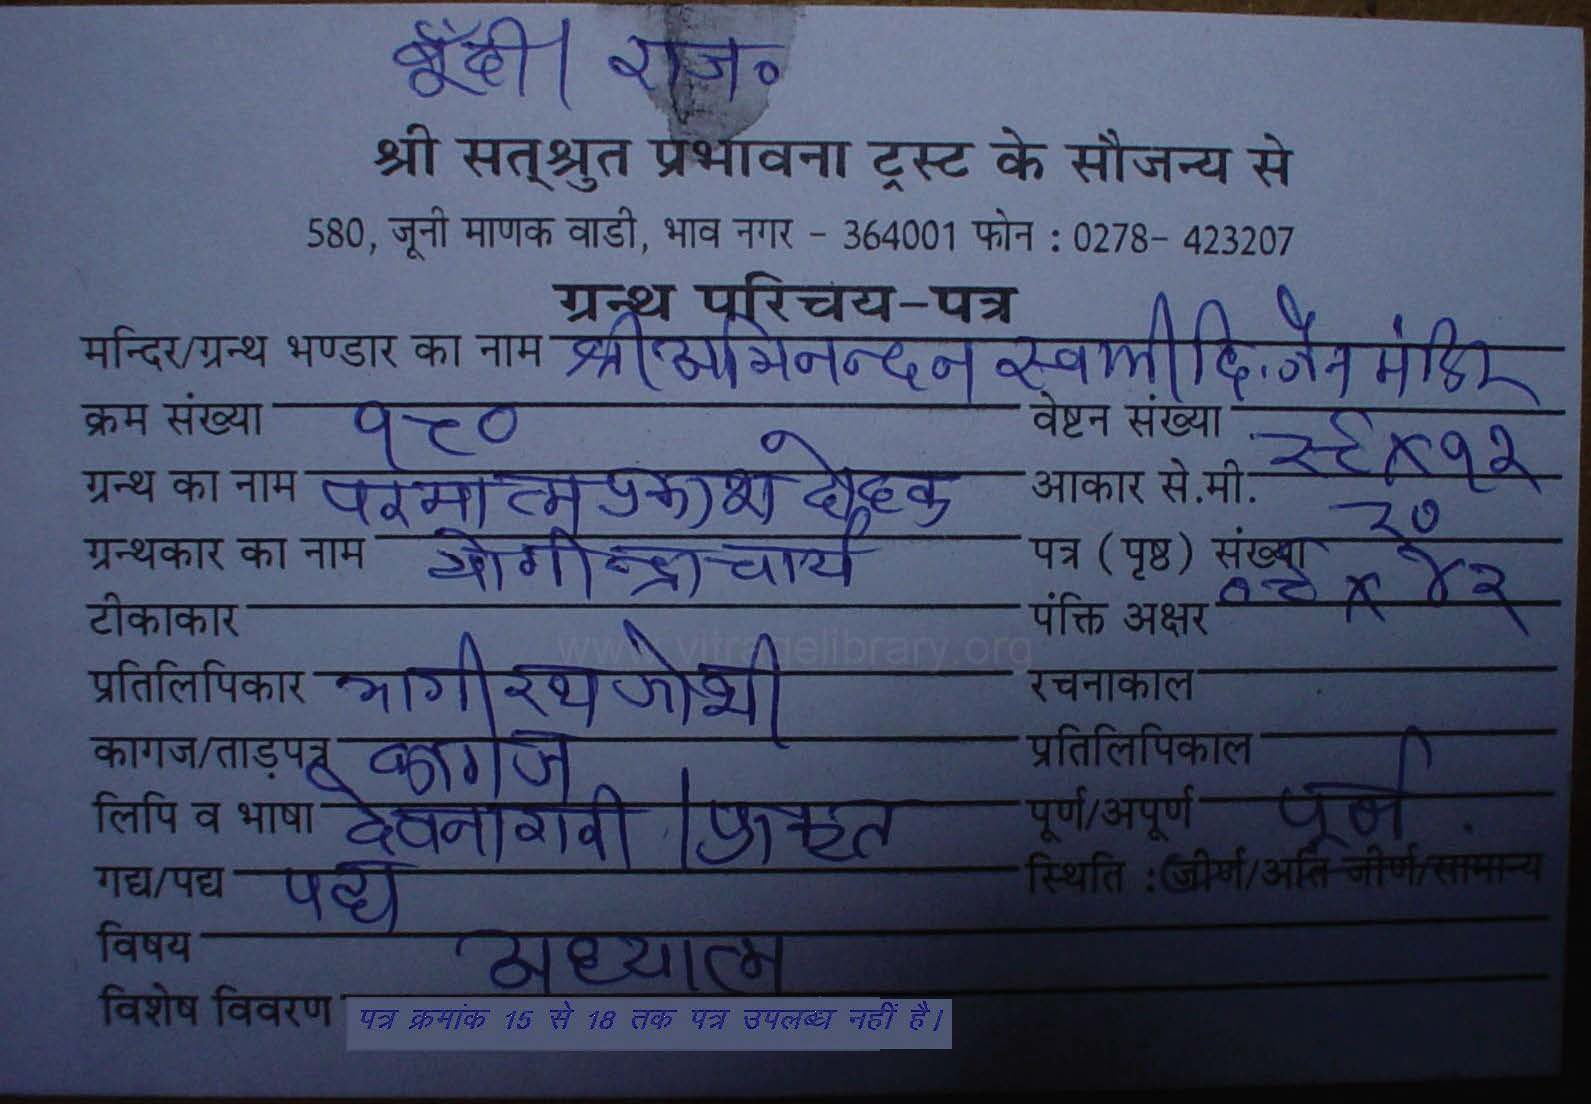 बूँदी। राज०
श्री सत्श्रुत प्रभावना ट्रस्ट के सौजन्य से
580, जूनी माणक वाडी, भाव नगर - 364001 फोन : 0278- 423207
ग्रन्थ परिचय-पत्र
मन्दिर/ग्रन्थ भण्डार का नाम श्री अभिनन्दन स्वामी दि. जैन मंदिर
क्रम संख्या १८० वेष्टन संख्या
ग्रन्थ का नाम परमात्म प्रकाश दोहक आकार से.मी. २९x१२
ग्रन्थकार का नाम योगीन्द्राचार्य पत्र (पृष्ठ) संख्या २७
टीकाकार पंक्ति अक्षर x ४२
www.vitragelibrary.org
प्रतिलिपिकार भागीरथ जोशी रचनाकाल
कागज/ताड़पत्र कागज प्रतिलिपिकाल
लिपि व भाषा देवनागरी / प्राकृत पूर्ण/अपूर्ण पूर्ण
गद्य/पद्य पद्य स्थिति : जीर्ण/अति जीर्ण/सामान्य
विषय अध्यात्म
विशेष विवरण पत्र क्रमांक 15 से 18 तक पत्र उपलब्ध नहीं है।